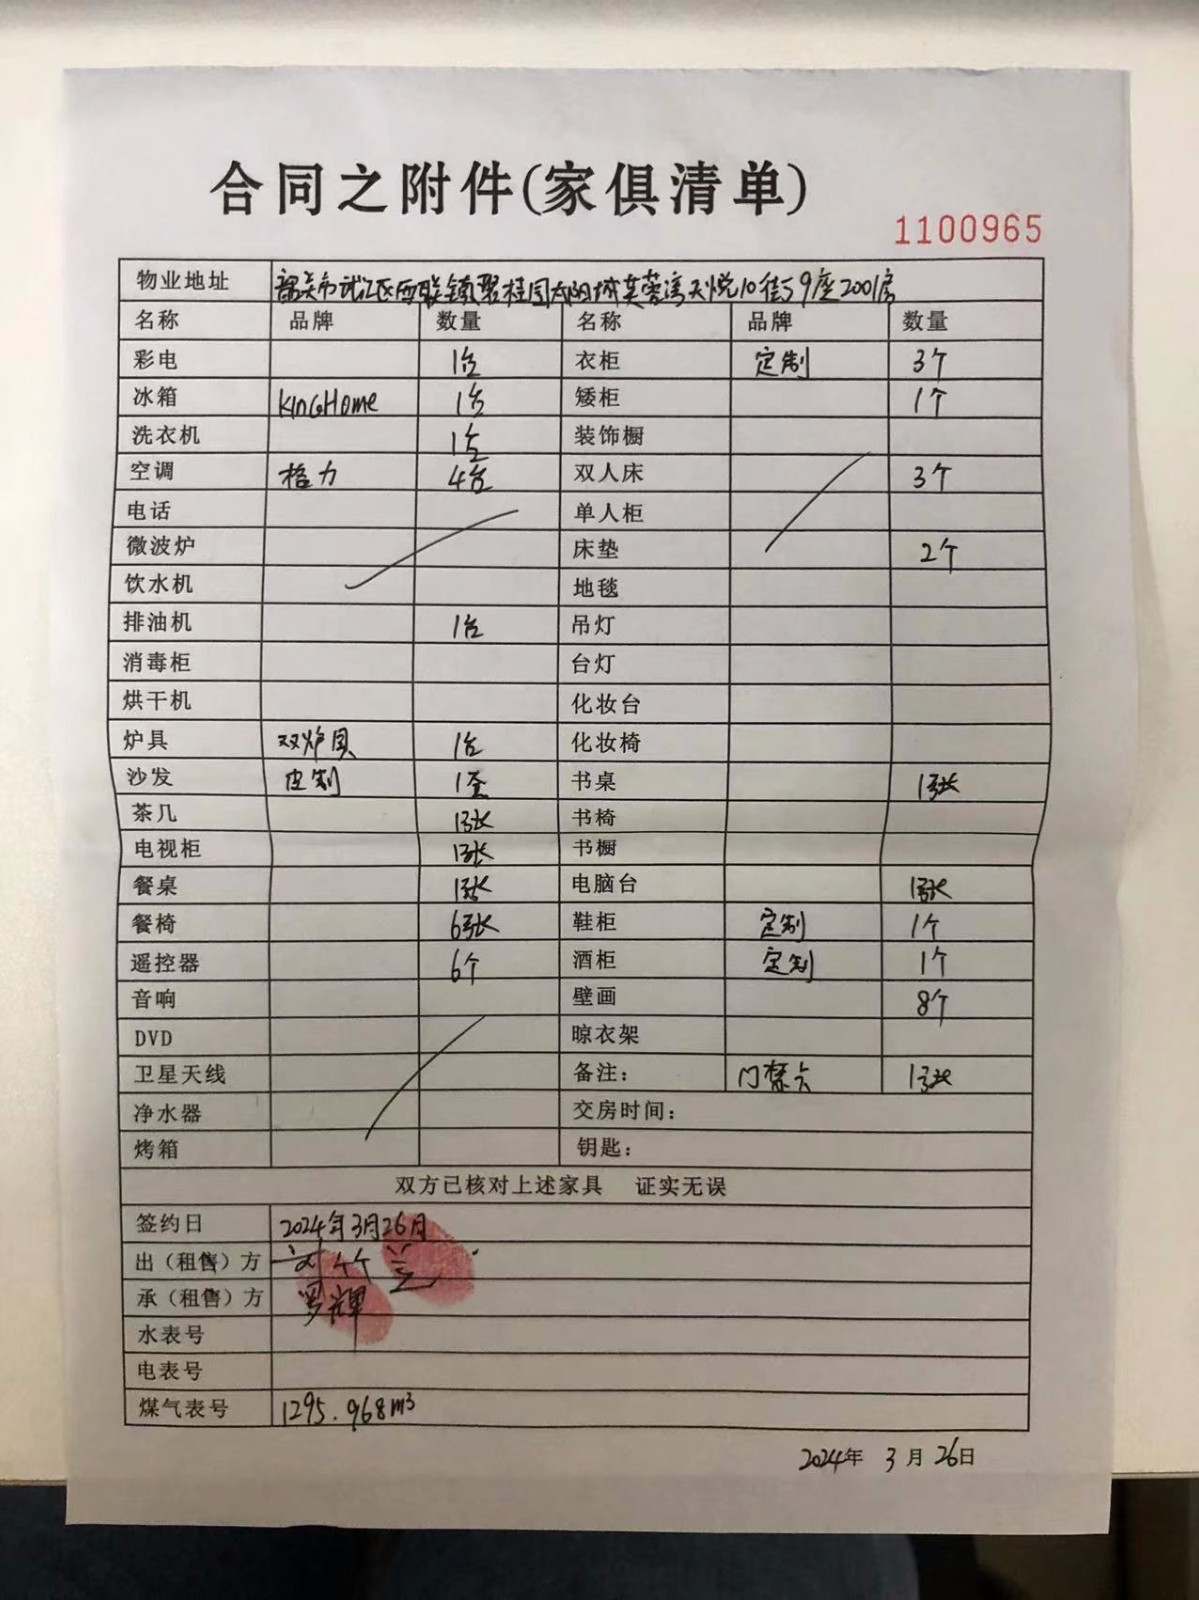 合同之附件(家俱清单)
1100965
物业地址 韶关市武江区西联镇碧桂园太阳城芙蓉湾天悦10街9座2001房
名称 品牌 数量 名称 品牌 数量
彩电 1台 衣柜 定制 3个
冰箱 KINGHOME 1台 矮柜 1个
洗衣机 1台 装饰橱
空调 格力 4台 双人床 3个
电话 单人柜
微波炉 床垫 2个
饮水机 地毯
排油机 1台 吊灯
消毒柜 台灯
烘干机 化妆台
炉具 双炉具 1台 化妆椅
沙发 皮制 1套 书桌 1张
茶几 1张 书椅
电视柜 1张 书橱
餐桌 1张 电脑台 1张
餐椅 6张 鞋柜 定制 1个
遥控器 6个 酒柜 定制 1个
音响 壁画 8个
DVD 晾衣架
卫星天线 备注: 门禁卡 1张
净水器 交房时间:
烤箱 钥匙:
双方已核对上述家具 证实无误
签约日 2024年3月26日
出(租售)方
承(租售)方 罗辉
水表号
电表号
煤气表号 1295.968m³
2024年 3月 26日